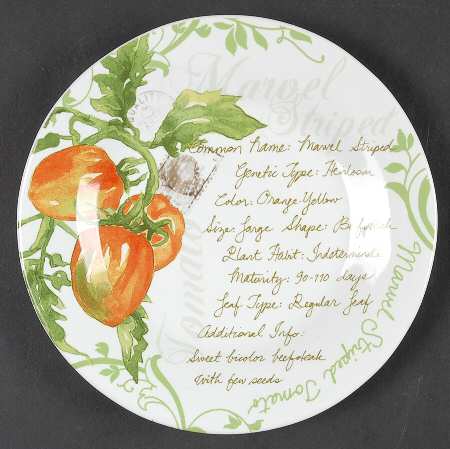 Marvel
Striped
Common Name: Marvel Striped
Genetic Type: Heirloom
Color: Orange-Yellow
Size: Large Shape: Beefsteak
Plant Habit: Indeterminate
Maturity: 90-110 days
Leaf Type: Regular Leaf
Additional Info:
Sweet bicolor beefsteak
With few seeds
Marvel Striped Tomato